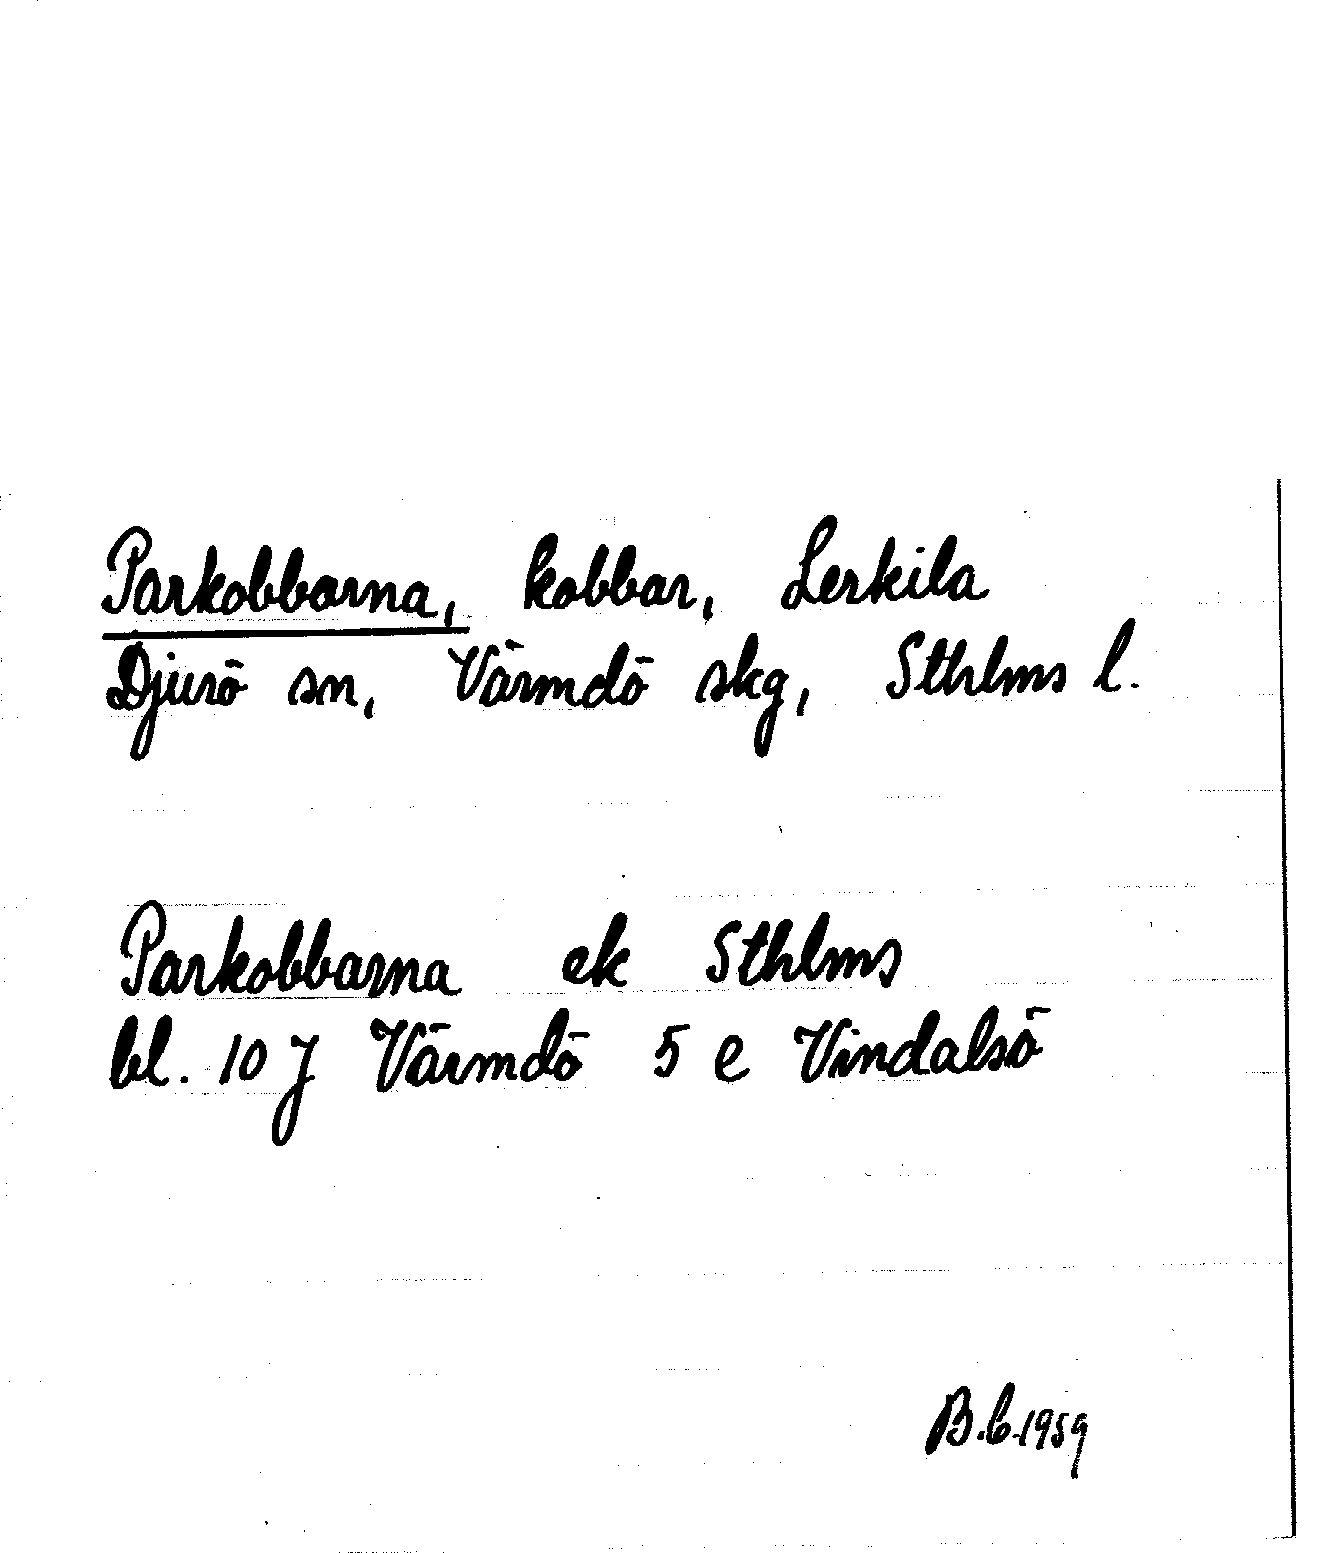 Parkobbarna, kobbar, Lerkila
Djurö sn, Värmdö skg, Sthlms l.
Parkobbarna ek Sthlms
bl. 10 J Värmdö 5 e Vindalsö
B.C.1959